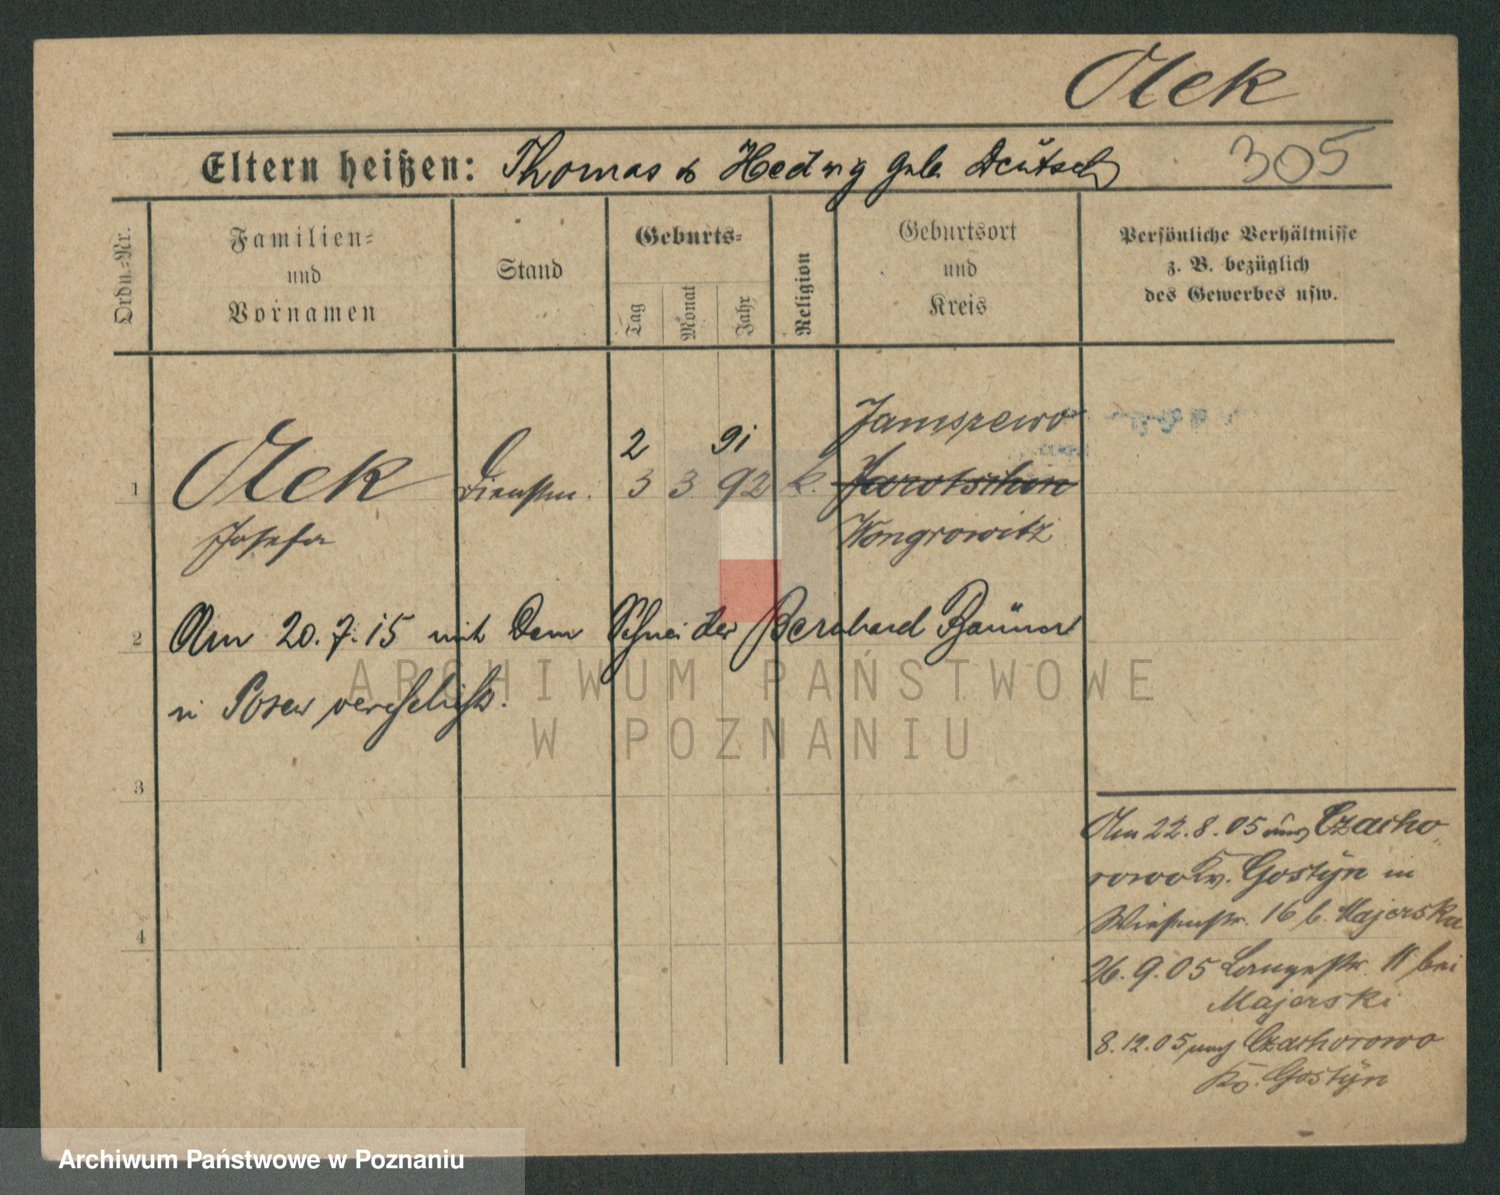 Olek
Eltern heißen: Thomas & Hedwig geb. Deutsch 305
Ordn.-Nr.
Familien-
und
Vornamen
Stand
Geburts-
Tag
Monat
Jahr
Religion
Geburtsort
und
Kreis
Persönliche Verhältnisse
z. B. bezüglich
des Gewerbes usw.
Janiszewo
2 91
1 Olek Dienstm. 3 3 92 k. Jarotschin
Josefa Wongrowitz
2 Am 20.7.15 mit dem Schneider Bernhard
in Posen verehelicht.
3
4
Am 22.8.05 aus Czacho
rowo Kr. Gostÿn in
Wiesenstr. 16 b. Majerska
26.9.05 Langestr 11 bei
Majerski
8.12.05 nach Czachorowo
Kr. Gostÿn
ARCHIWUM PAŃSTWOWE
W POZNANIU
Archiwum Państwowe w Poznaniu